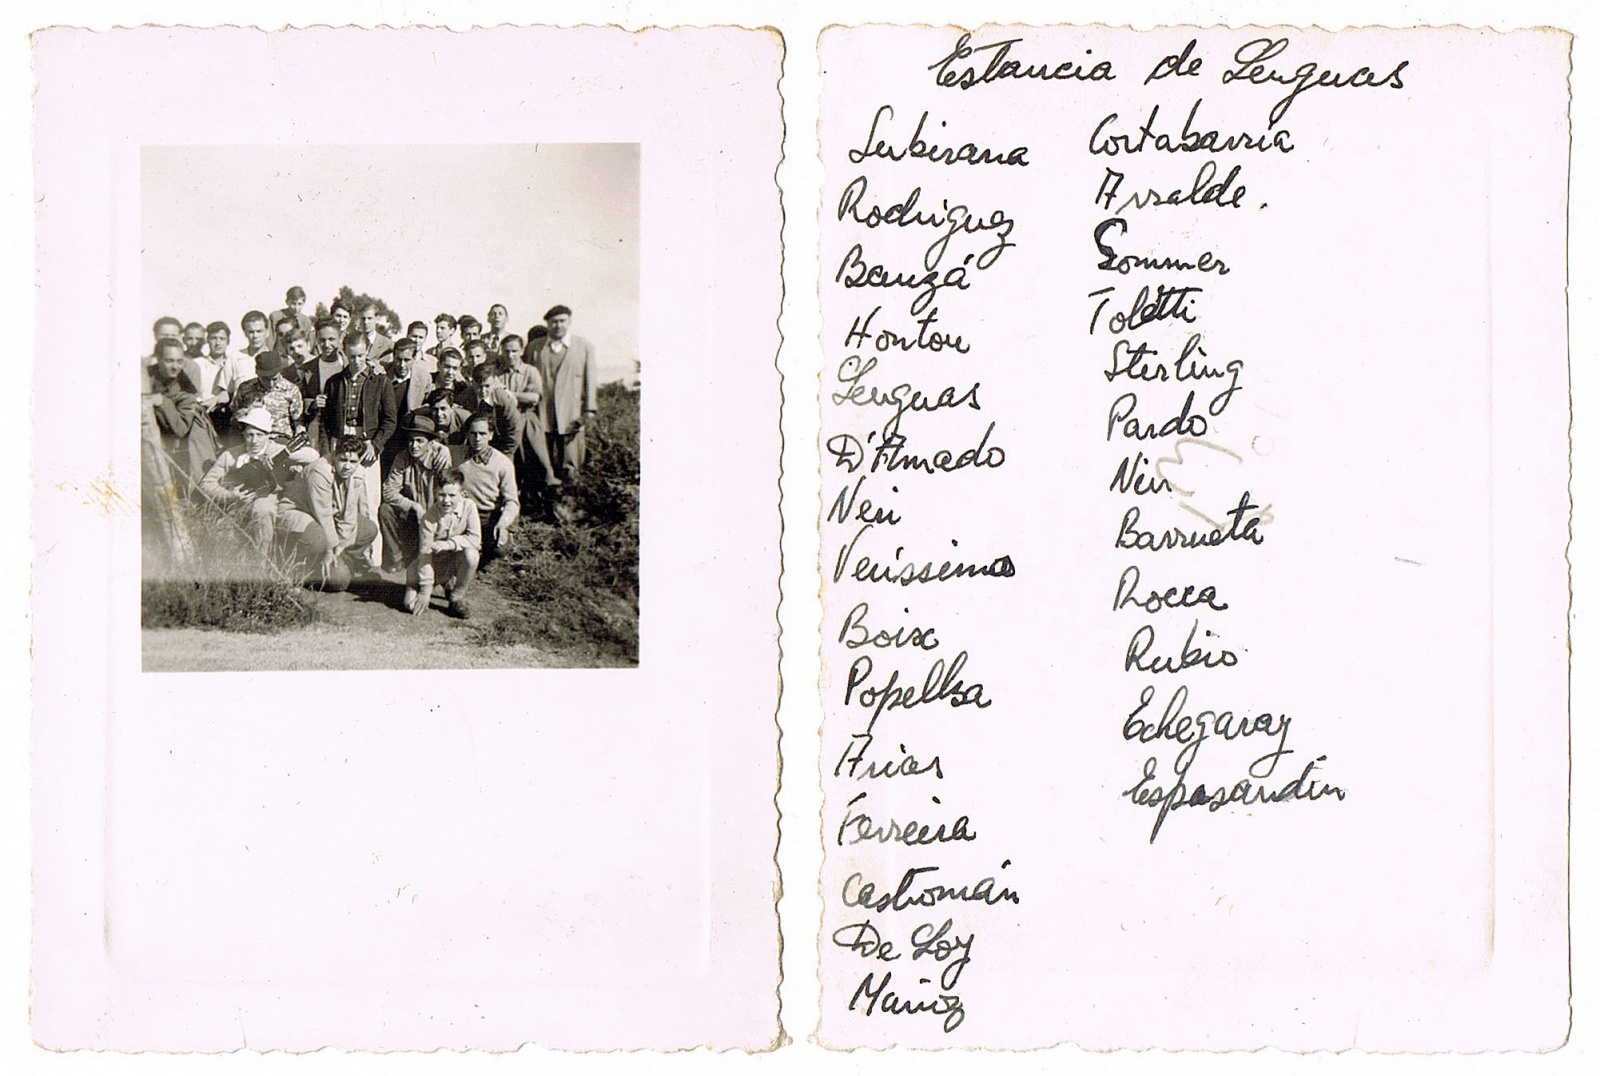 Estancia de Lenguas
Subirana
Rodriguez
Bauzá
Hontou
Lenguas
D'Amado
Neri
Veríssimo
Boix
Popelka
Arias
Ferreira
Castromán
De Loy
Cortabarría
Arralde.
Sommer
Toletti
Stirling
Pardo
Nin
Barrueta
Rocca
Rubio
Echegaray
Espasandín